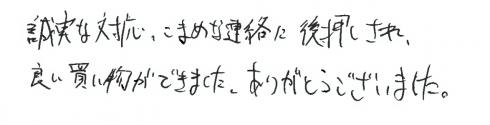 誠実な対応、こまめな連絡に後押しされ、
良い買い物ができました。ありがとうございました。